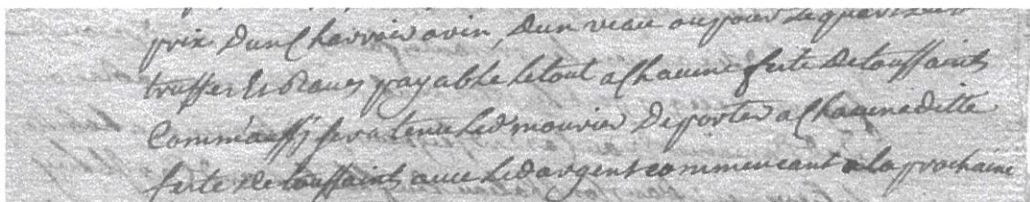 prix d'un charroir a vin, d'un veau
truffes Et Raves payable le tout a chacune feste de toussaints
Comm'aussy sera tenu led mourier De porter a chacune ditte
feste de toussaints avec led argent commencant a la prochaine